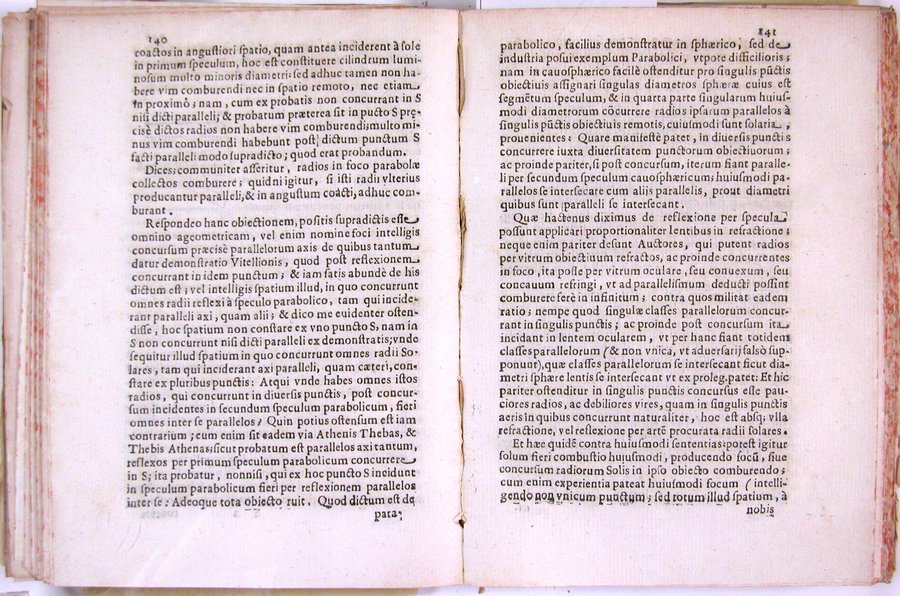 140
coactos in angustiori spatio, quam antea inciderent à sole
in primum speculum, hoc est constituere cilindrum lumi-
nosum multo minoris diametri: sed adhuc tamen non ha-
bere vim comburendi nec in spatio remoto, nec etiam
in proximo; nam, cum ex probatis non concurrant in S
nisi dicti paralleli; & probatum præterea sit in pucto S prę-
cisè dictos radios non habere vim comburendi; multo mi-
nus vim comburendi habebunt post dictum punctum S
facti paralleli modo supradicto; quod erat probandum.
Dices; communiter asseritur, radios in foco parabolæ
collectos comburere; quidni igitur, si isti radii vlterius
producantur paralleli, & in angustum coacti, adhuc com-
burant.
Respondeo hanc obiectionem, positis supradictis esse
omnino ageometricam, vel enim nomine foci intelligis
concursum præcisè parallelorum axis de quibus tantum
datur demonstratio Vitellionis, quod post reflexionem
concurrant in idem punctum; & iam satis abundè de his
dictum est; vel intelligis spatium illud, in quo concurrunt
omnes radii reflexi à speculo parabolico, tam qui incide-
rant paralleli axi, quam alii; & dico me euidenter osten-
disse, hoc spatium non constare ex vno puncto S, nam in
S non concurrunt nisi dicti paralleli ex demonstratis; vnde
sequitur illud spatium in quo concurrunt omnes radii So-
lares, tam qui inciderant axi paralleli, quam cæteri, con-
stare ex pluribus punctis: Atqui vnde habes omnes istos
radios, qui concurrunt in diuersis punctis, post concur-
sum incidentes in secundum speculum parabolicum, fieri
omnes inter se parallelos? Quin potius ostensum est iam
contrarium; cum enim sit eadem via Athenis Thebas, &
Thebis Athenas: sicut probatum est parallelos axi tantum,
reflexos per primum speculum parabolicum concurrere
in S; ita probatur, nonnisi, qui ex hoc puncto S incidunt
in speculum parabolicum fieri per reflexionem parallelos
inter se: Adeoque tota obiecto ruit. Quod dictum est de
para-
141
parabolico, facilius demonstratur in sphærico, sed de
industria posui exemplum Parabolici, vtpote difficilioris;
nam in cauosphærico facilè ostenditur pro singulis pũctis
obiectiuis assignari singulas diametros sphæræ cuius est
segmẽtum speculum, & in quarta parte singularum huius-
modi diametrorum cõcurrere radios ipsarum parallelos à
singulis pũctis obiectiuis remotis, cuiusmodi sunt solaria,
prouenientes: Quare manifestè patet, in diuersis punctis
concurrere iuxta diuersitatem punctorum obiectiuorum;
ac proinde pariter, si post concursum, iterum fiant paralle-
li per secundum speculum cauosphæricum; huiusmodi pa-
rallelos se intersecare cum alijs parallelis, prout diametri
quibus sunt paralleli se intersecant.
Quæ hactenus diximus de reflexione per specula
possunt applicari proportionaliter lentibus in refractione;
neque enim pariter desunt Auctores, qui putent radios
per vitrum obiectiuum refractos, ac proinde concurrentes
in foco, ita posse per vitrum oculare, seu conuexum, seu
concauum refringi, vt ad parallelismum deducti possint
comburere ferè in infinitum; contra quos militat eadem
ratio; nempe quod singulæ classes parallelorum concur-
rant in singulis punctis; ac proinde post concursum ita
incidant in lentem ocularem, vt per hanc fiant totidem
classes parallelorum (& non vnica, vt aduersarij falsò sup-
ponunt), quæ classes parallelorum se intersecant sicut dia-
metri sphæræ lentis se intersecant vt ex proleg. patet: Et hic
pariter ostenditur in singulis punctis concursus esse pau-
ciores radios, ac debiliores vires, quam in singulis punctis
aeris in quibus concurrunt naturaliter, hoc est absq; vlla
refractione, vel reflexione per artẽ procurata radii solares.
Et hæc quidẽ contra huiusmodi sententias: potest igitur
solum fieri combustio huiusmodi, producendo focũ, siue
concursum radiorum Solis in ipso obiecto comburendo;
cum enim experientia pateat huiusmodi focum (intelli-
gendo non vnicum punctum; sed totum illud spatium, à
nobis